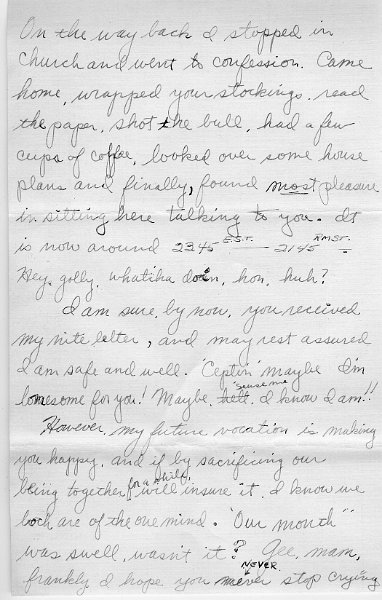 On the way back I stopped in
church and went to confession. Came
home, wrapped your stockings, read
the paper, shot the bull, had a few
cups of coffee, looked over some house
plans and finally, found most pleasure
in sitting here talking to you. It
is now around 2345 E.S.T. — 2145 R.M.S.T.
Hey, golly, whatiha doin, hon, huh?
I am sure, by now, you received
my nite letter, and may rest assured
I am safe and well. 'Ceptin' maybe I'm
lonesome for you! Maybe, 'scuse me hell, I know I am!!
However, my future vocation is making
you happy, and if by sacrificing our
being together for a while, will insure it, I know we
both are of the one mind. "Our month"
was swell, wasn't it? Gee, mam,
frankly I hope you NEVER never stop crying